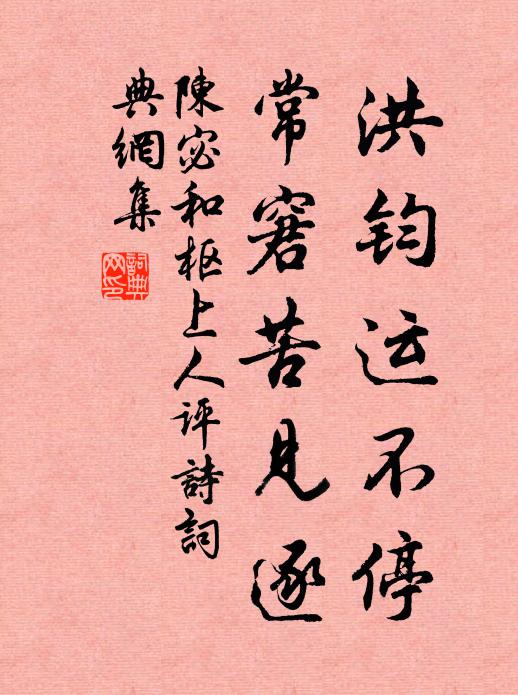 洪钧运不停
常窘苦见逐
陳宓和柩上人评詩詞
典網集
詞典
网印